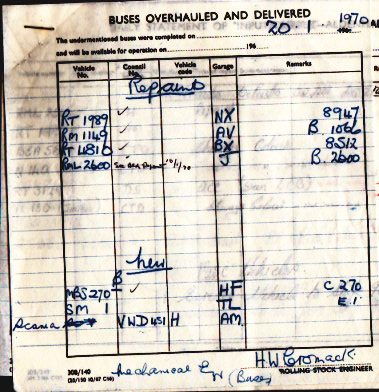 BUSES OVERHAULED AND DELIVERED
The undermentioned buses were completed on 20 . 1 1970
and will be available for operation on 196
Vehicle No. Council No. Vehicle code Garage Remarks
Repaints
RT 1989 ✓ NX 8947
RM 1149 ✓ AV B. 1066
RT 4810 ✓ BX 8512
RML 2600 J B. 2600
New
B
MBS 270 ✓ HF C 270
SM 1 TL E 1
Scania VWD 451 H AM
308/140
(20/150 10/67 C16)
Mechanical Eng (Buses)
H.W. Cromack
ROLLING STOCK ENGINEER